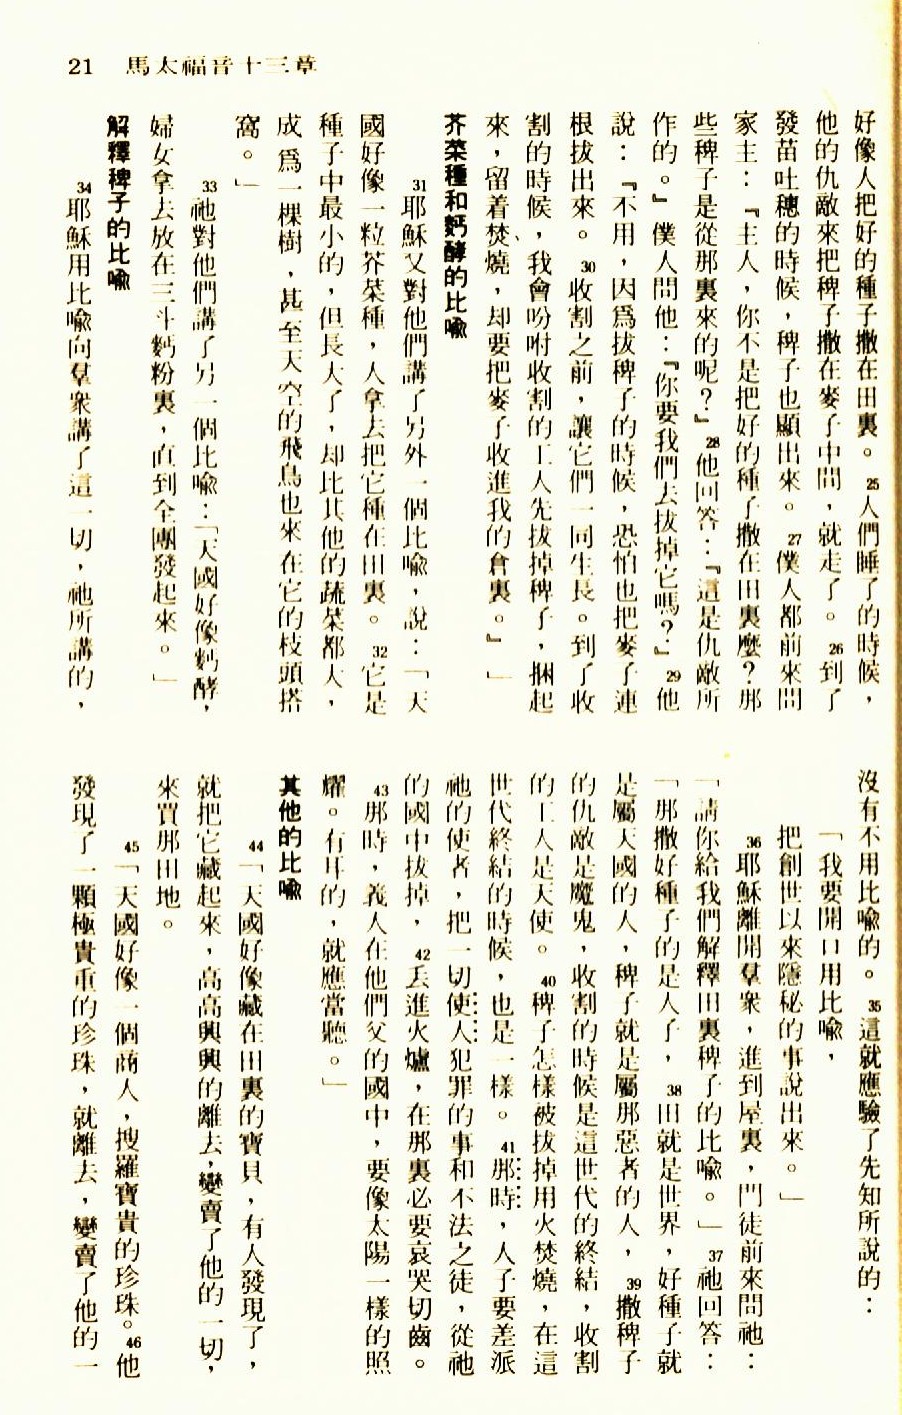 21 馬太福音十三章
好像人把好的種子撒在田裏。25人們睡了的時候，
他的仇敵來把稗子撒在麥子中間，就走了。26到了
發苗吐穗的時候，稗子也顯出來。27僕人都前來問
家主：『主人，你不是把好的種子撒在田裏麼？那
些稗子是從那裏來的呢？』28他回答：『這是仇敵所
作的。』僕人問他：『你要我們去拔掉它嗎？』29他
說：『不用，因爲拔稗子的時候，恐怕也把麥子連
根拔出來。30收割之前，讓它們一同生長。到了收
割的時候，我會吩咐收割的工人先拔掉稗子，捆起
來，留着焚燒，却要把麥子收進我的倉裏。』」
芥菜種和麪酵的比喩
31耶穌又對他們講了另外一個比喩，說：「天
國好像一粒芥菜種，人拿去把它種在田裏。32它是
種子中最小的，但長大了，却比其他的蔬菜都大，
成爲一棵樹，甚至天空的飛鳥也來在它的枝頭搭
窩。」
33祂對他們講了另一個比喩：「天國好像麪酵，
婦女拿去放在三斗麪粉裏，直到全團發起來。」
解釋稗子的比喩
34耶穌用比喩向羣衆講了這一切，祂所講的，
沒有不用比喩的。35這就應驗了先知所說的：
「我要開口用比喩，
把創世以來隱秘的事說出來。」
36耶穌離開羣衆，進到屋裏，門徒前來問祂：
「請你給我們解釋田裏稗子的比喩。」37祂回答：
「那撒好種子的是人子，38田就是世界，好種子就
是屬天國的人，稗子就是屬那惡者的人，39撒稗子
的仇敵是魔鬼，收割的時候是這世代的終結，收割
的工人是天使。40稗子怎樣被拔掉用火焚燒，在這
世代終結的時候，也是一樣。41那時，人子要差派
祂的使者，把一切使人犯罪的事和不法之徒，從祂
的國中拔掉，42丟進火爐，在那裏必要哀哭切齒。
43那時，義人在他們父的國中，要像太陽一樣的照
耀。有耳的，就應當聽。」
其他的比喩
44「天國好像藏在田裏的寶貝，有人發現了，
就把它藏起來，高高興興的離去，變賣了他的一切，
來買那田地。
45「天國好像一個商人，搜羅寶貴的珍珠。46他
發現了一顆極貴重的珍珠，就離去，變賣了他的一